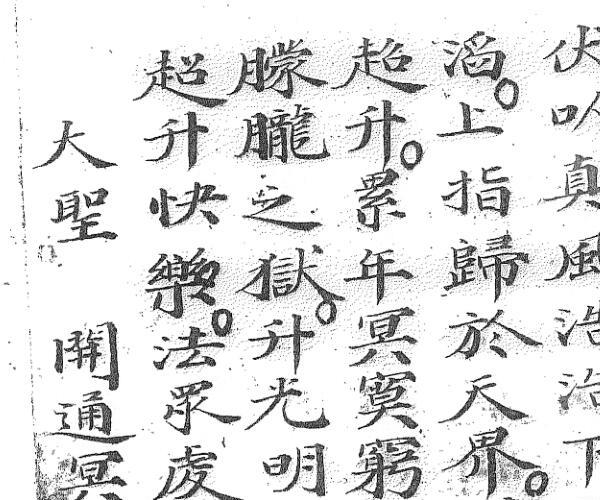 伏以真風浩浩下
滔。上指歸於天界。
超升。累年冥寞窮
朦朧之獄。升光明
超升快樂。法眾虔
大聖 開通冥